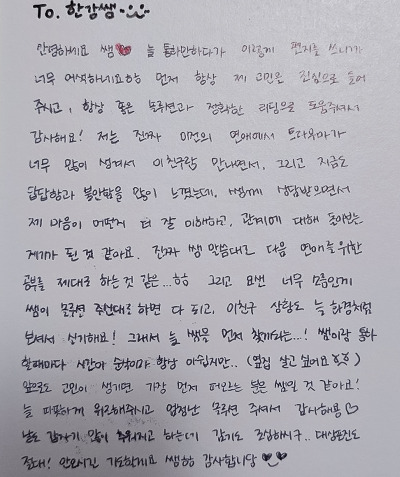 To. 한강쌤
안녕하세요 쌤♥ 늘 통화만하다가 이렇게 편지를 쓰니까
너무 어색하네요ㅎㅎ 먼저 항상 제 고민을 진심으로 들어
주시고, 항상 좋은 솔루션과 정확한 리딩으로 도움주셔서
감사해요! 저는 진짜 이전의 연애에서 트라우마가
너무 많이 생겨서 이친구랑 만나면서, 그리고 지금도
답답함과 불안함을 많이 느꼈는데, 쌤께 상담받으면서
제 마음이 어떤지 더 잘 이해하고, 관계에 대해 돌아보는
계기가 된 것 같아요. 진짜 쌤 말씀대로 다음 연애를위한
공부를 제대로 하는것 같은...ㅎㅎ 그리고 요번 너무 소름인게
쌤이 솔루션 주신대로 하면 다 되고, 이친구 상황도 늘 화경처럼
보셔서 신기해요! 그래서 늘 쌤을 먼저 찾게되는...! 쌤이랑 통화
할때마다 시간이 순삭이라 항상 아쉽지만.. (옆집 살고 싶어요 ㅎㅎ)
앞으로도 고민이 생기면 가장 먼저 떠오르는 분은 쌤일 것 같아요!
늘 따뜻하게 위로해주시고 엄청난 솔루션 주셔서 감사해용♡
날도 갑자기 많이 추워지고 하는데 감기도 조심하시구..
절대! 안오시길 기도할게요 쌤 감사합니당 ♥♥